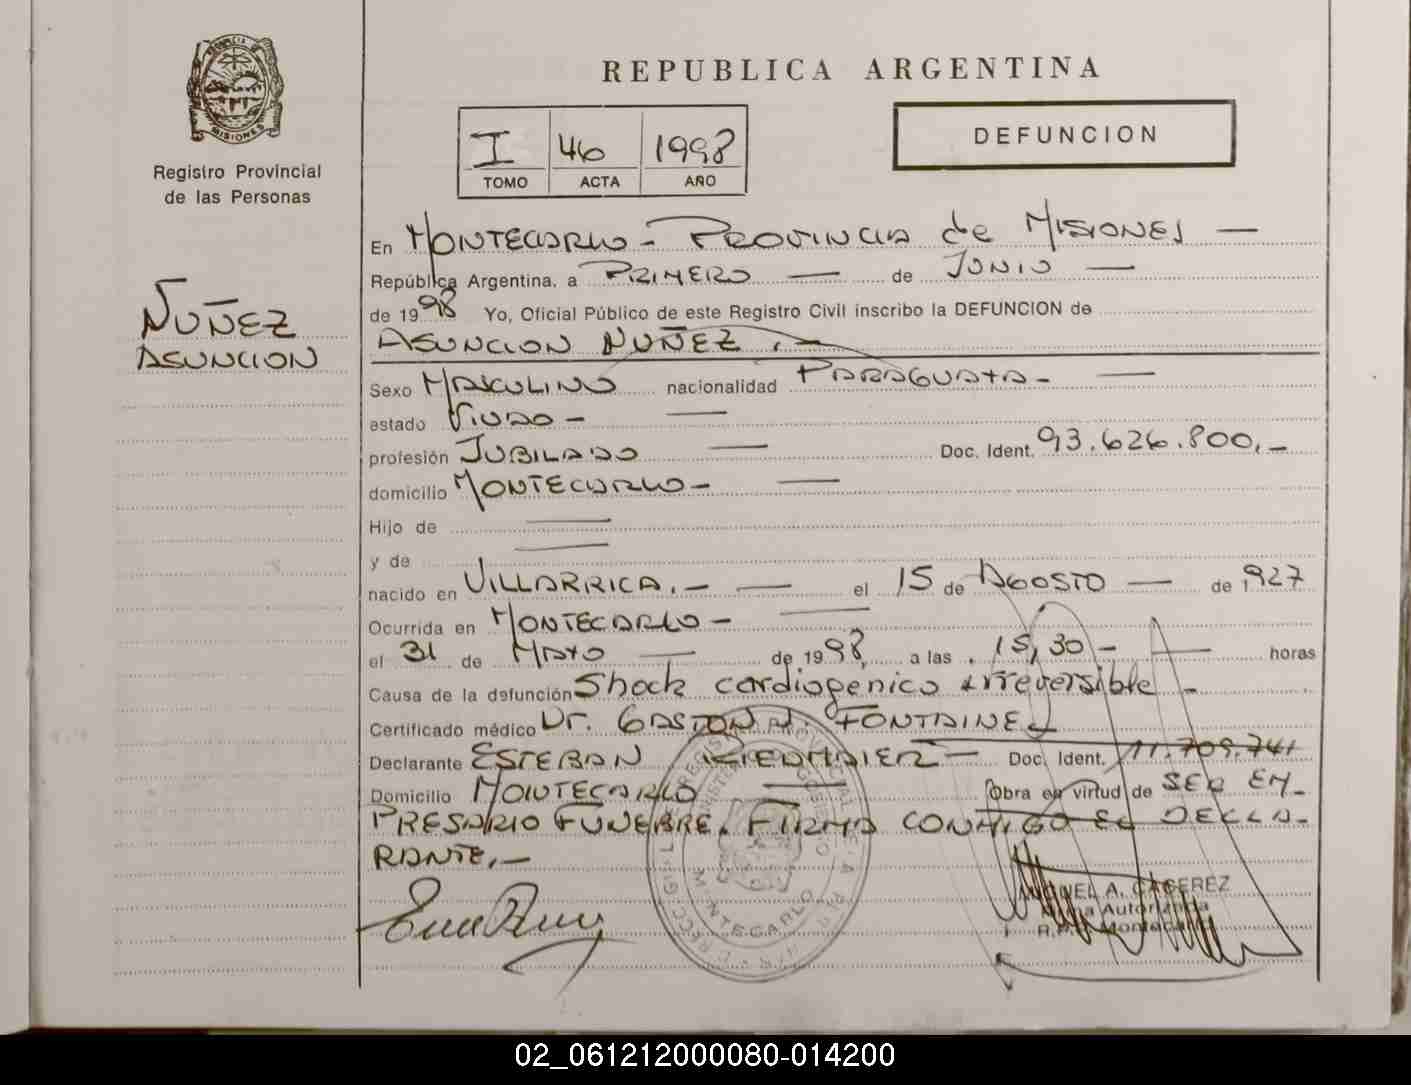 PROVINCIA DE
MISIONES
Registro Provincial
de las Personas
REPUBLICA ARGENTINA
I 46 1998
TOMO ACTA AÑO
DEFUNCION
NUÑEZ
ASUNCION
En MONTECARLO - PROVINCIA de MISIONES —
República Argentina, a PRIMERO — de JUNIO —
de 1998 Yo, Oficial Público de este Registro Civil inscribo la DEFUNCION de
ASUNCION NUÑEZ .-
Sexo MASCULINO nacionalidad PARAGUAYA - —
estado VIUDO - —
profesión JUBILADO — Doc. Ident. 93.626.800,-
domicilio MONTECARLO - —
Hijo de —
y de —
nacido en VILLARRICA. - — el 15 de AGOSTO — de 1927
Ocurrida en MONTECARLO - —
el 31 de MAYO — de 1998, a las 15,30 - — horas
Causa de la defunción Shock cardiogenico irreversible -
Certificado médico Dr. GASTON J. FONTAINE
Declarante ESTEBAN — Doc. Ident. 11.709.741
Domicilio MONTECARLO — Obra en virtud de SER EM-
PRESARIO FUNEBRE. FIRMA CONMIGO EL DECLA-
RANTE.-
MIGUEL A. CACEREZ
Firma Autorizada
R.P.P. Montecarlo
MONTECARLO
02_061212000080-014200